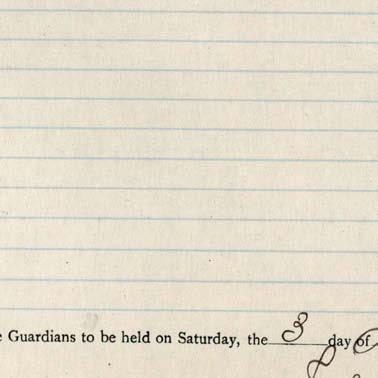 Guardians to be held on Saturday, the 3 day of